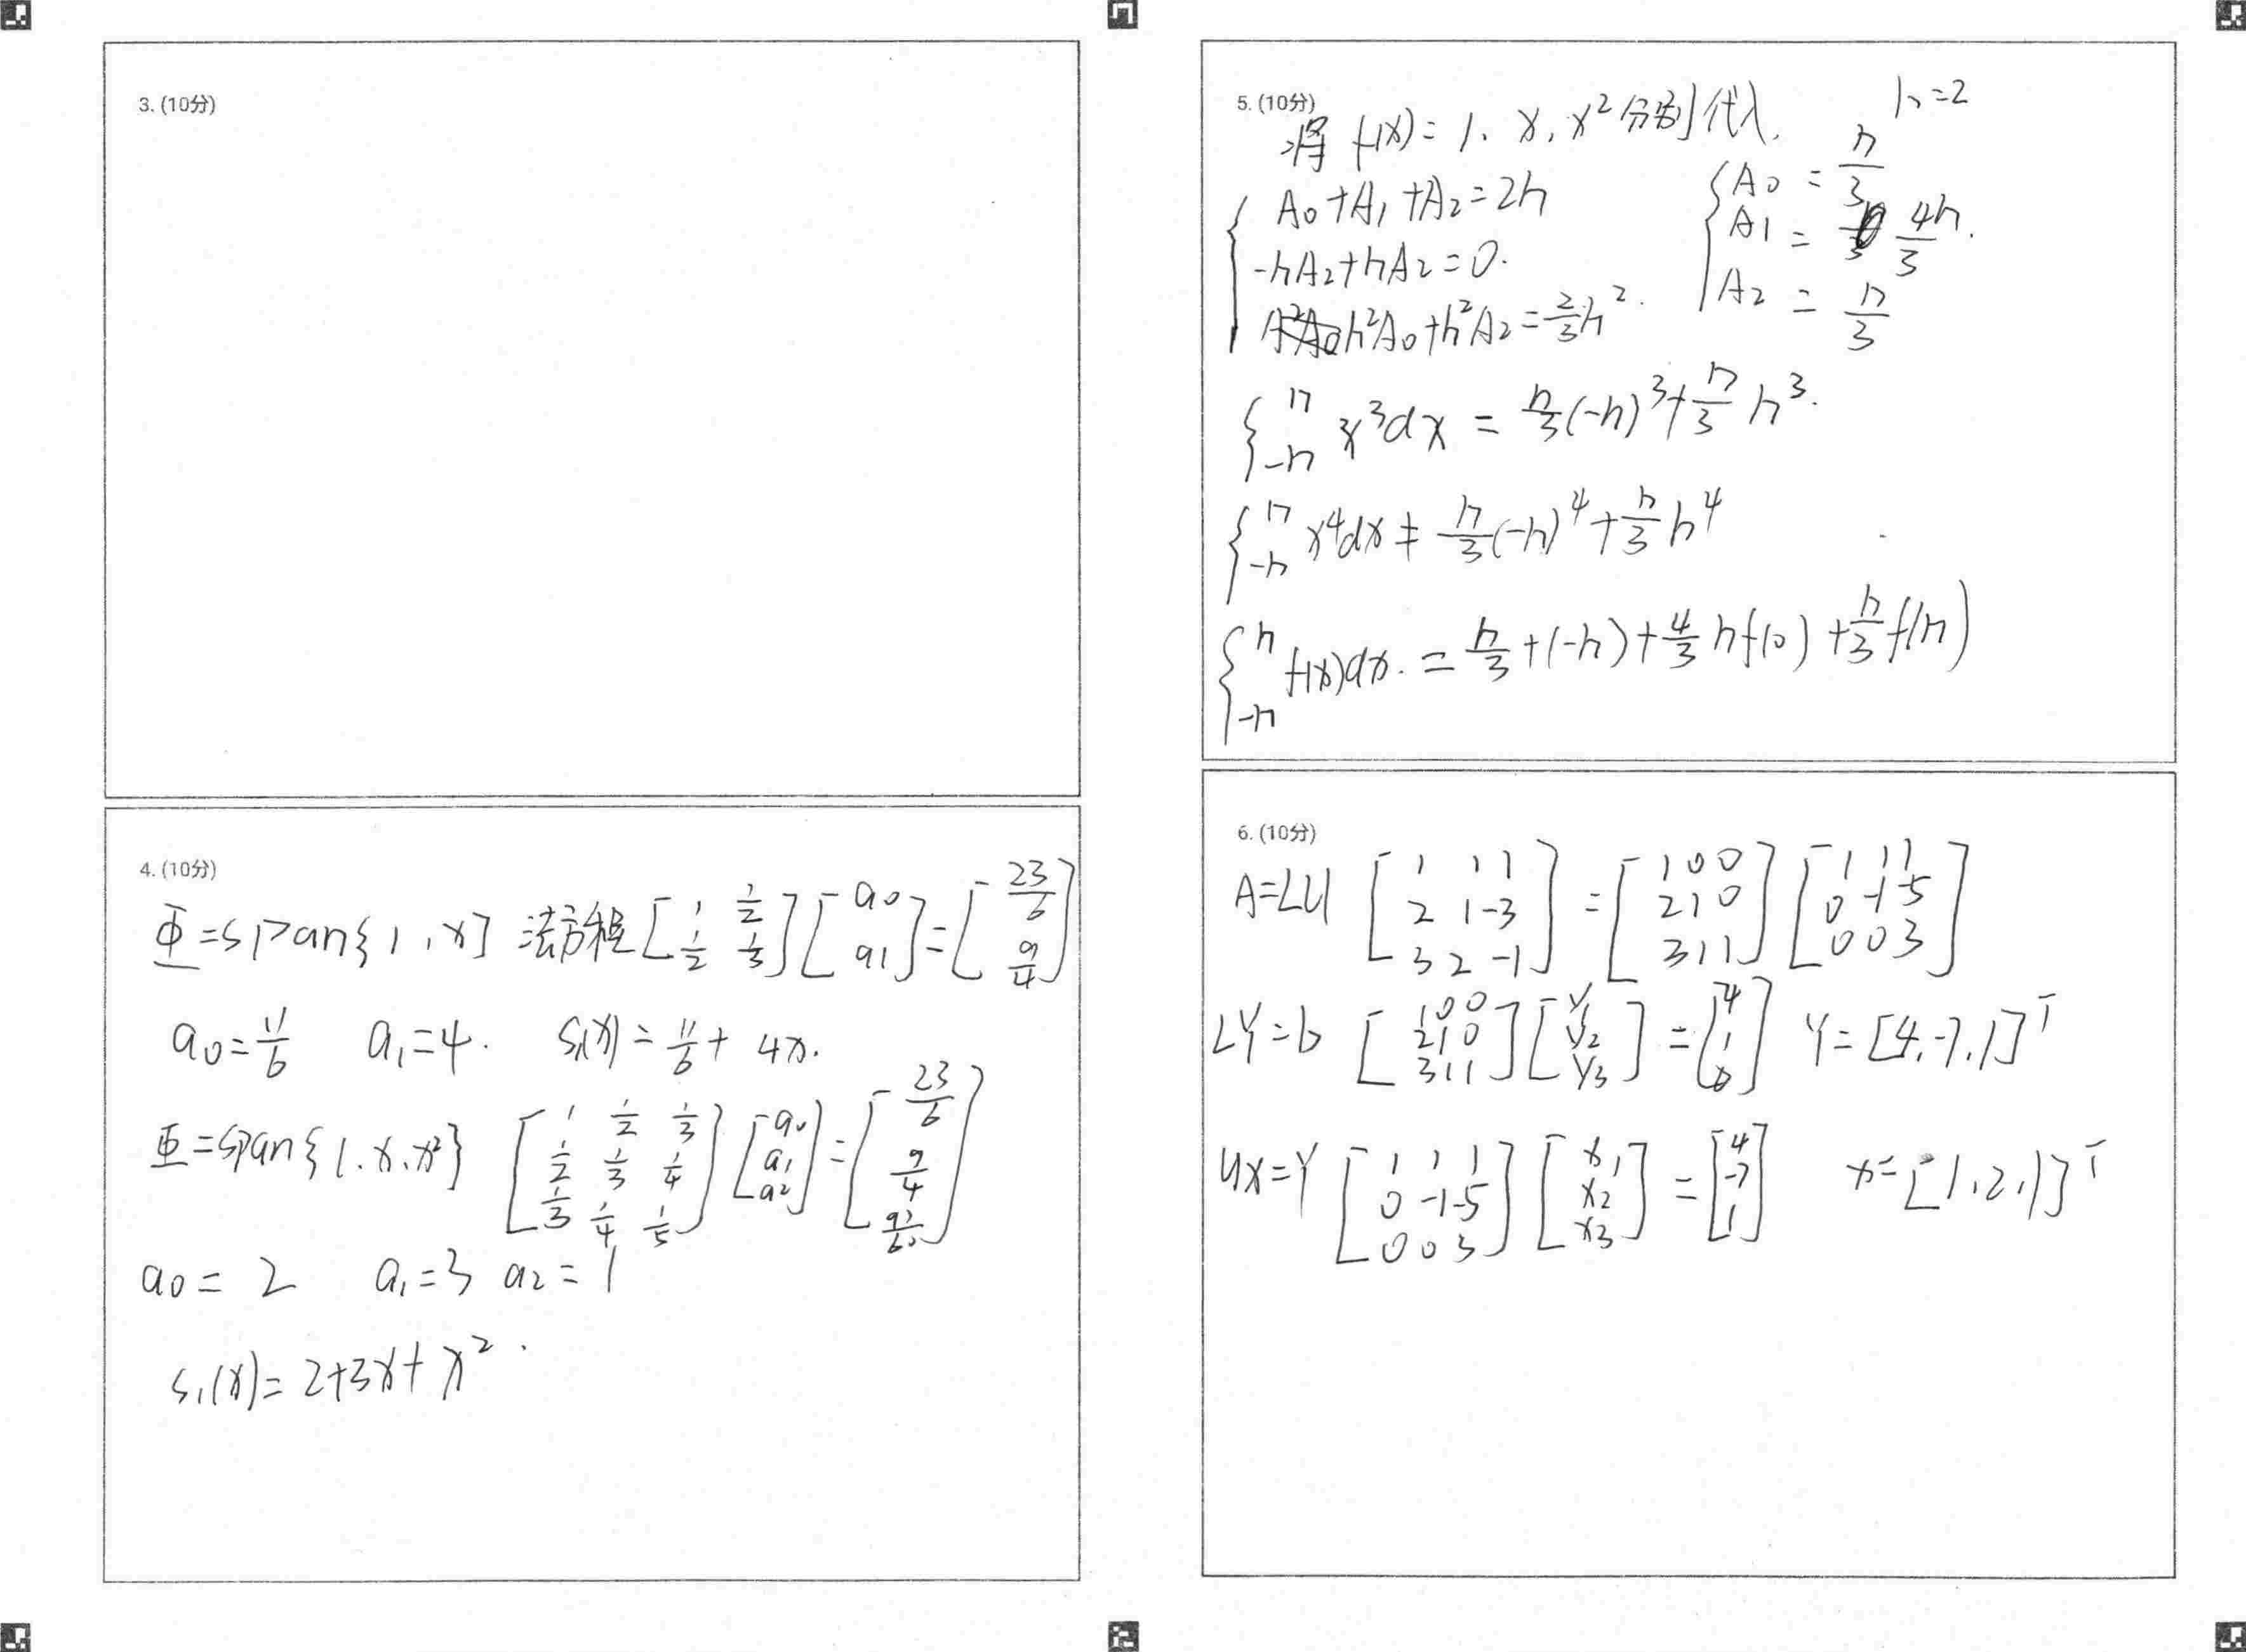 3. (10分)
4. (10分)
Φ=span{1,x] 法方程 [1 1/2; 1/2 1/3][a0; a1]=[23/6; 9/4]
a0=11/6 a1=4. S(x)=11/6+4x.
Φ=span{1.x.x²} [1 1/2 1/3; 1/2 1/3 1/4; 1/3 1/4 1/5][a0; a1; a2]=[23/6; 9/4; /60]
a0=2 a1=3 a2=1
S1(x)=2+3x+x².
5. (10分)
将 f(x)=1、x,x²分别代入. h=2
A0+A1+A2=2h
-hA2+hA2=0.
h²A0+h²A2=2/3h².
A0=h/3
A1=4h/3.
A2=h/3
∫_{-h}^{h} x³dx=h/3(-h)³+h/3h³.
∫_{-h}^{h} x⁴dx≠h/3(-h)⁴+h/3h⁴
∫_{-h}^{h} f(x)dx.=h/3+(-h)+4/3hf(0)+h/3f(h)
6. (10分)
A=LU [1 1 1; 2 1 -3; 3 2 -1]=[1 0 0; 2 1 0; 3 1 1][1 1 1; 0 -1 -5; 0 0 3]
LY=b [1 0 0; 2 1 0; 3 1 1][y1; y2; y3]=[4; 1; ] Y=[4,-7,1]^T
Ux=Y [1 1 1; 0 -1 -5; 0 0 3][x1; x2; x3]=[4; -7; 1] x=[1,2,1]^T